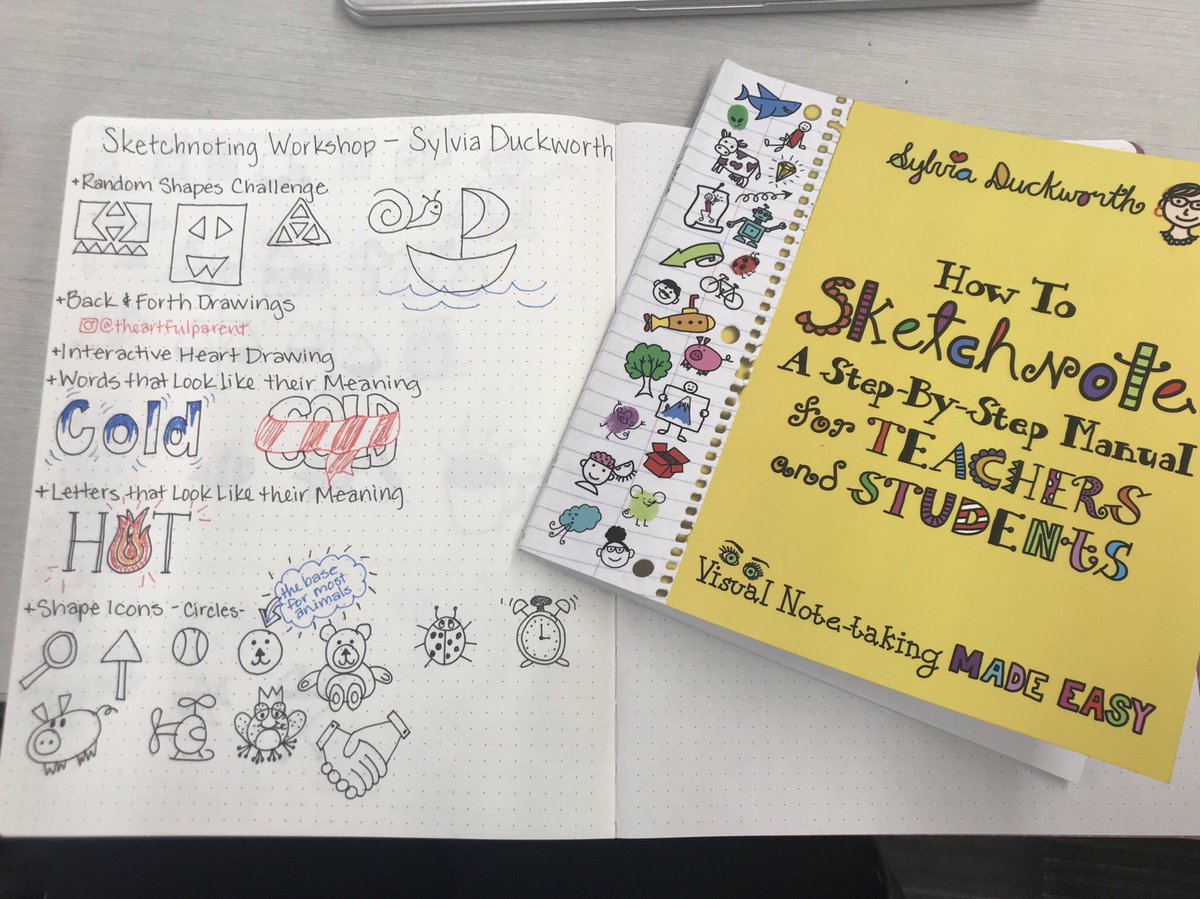 Sketchnoting Workshop - Sylvia Duckworth
+Random Shapes Challenge
+Back & Forth Drawings
@theartfulparent
+Interactive Heart Drawing
+Words that Look Like their Meaning
Cold
COLD
+Letters that Look Like their Meaning
HOT
+Shape Icons - Circles-
the base
for most
animals
Sylvia Duckworth
How To
Sketchnote
A Step-By-Step Manual
for TEACHERS
and STUDENTS
Visual Note-taking MADE EASY